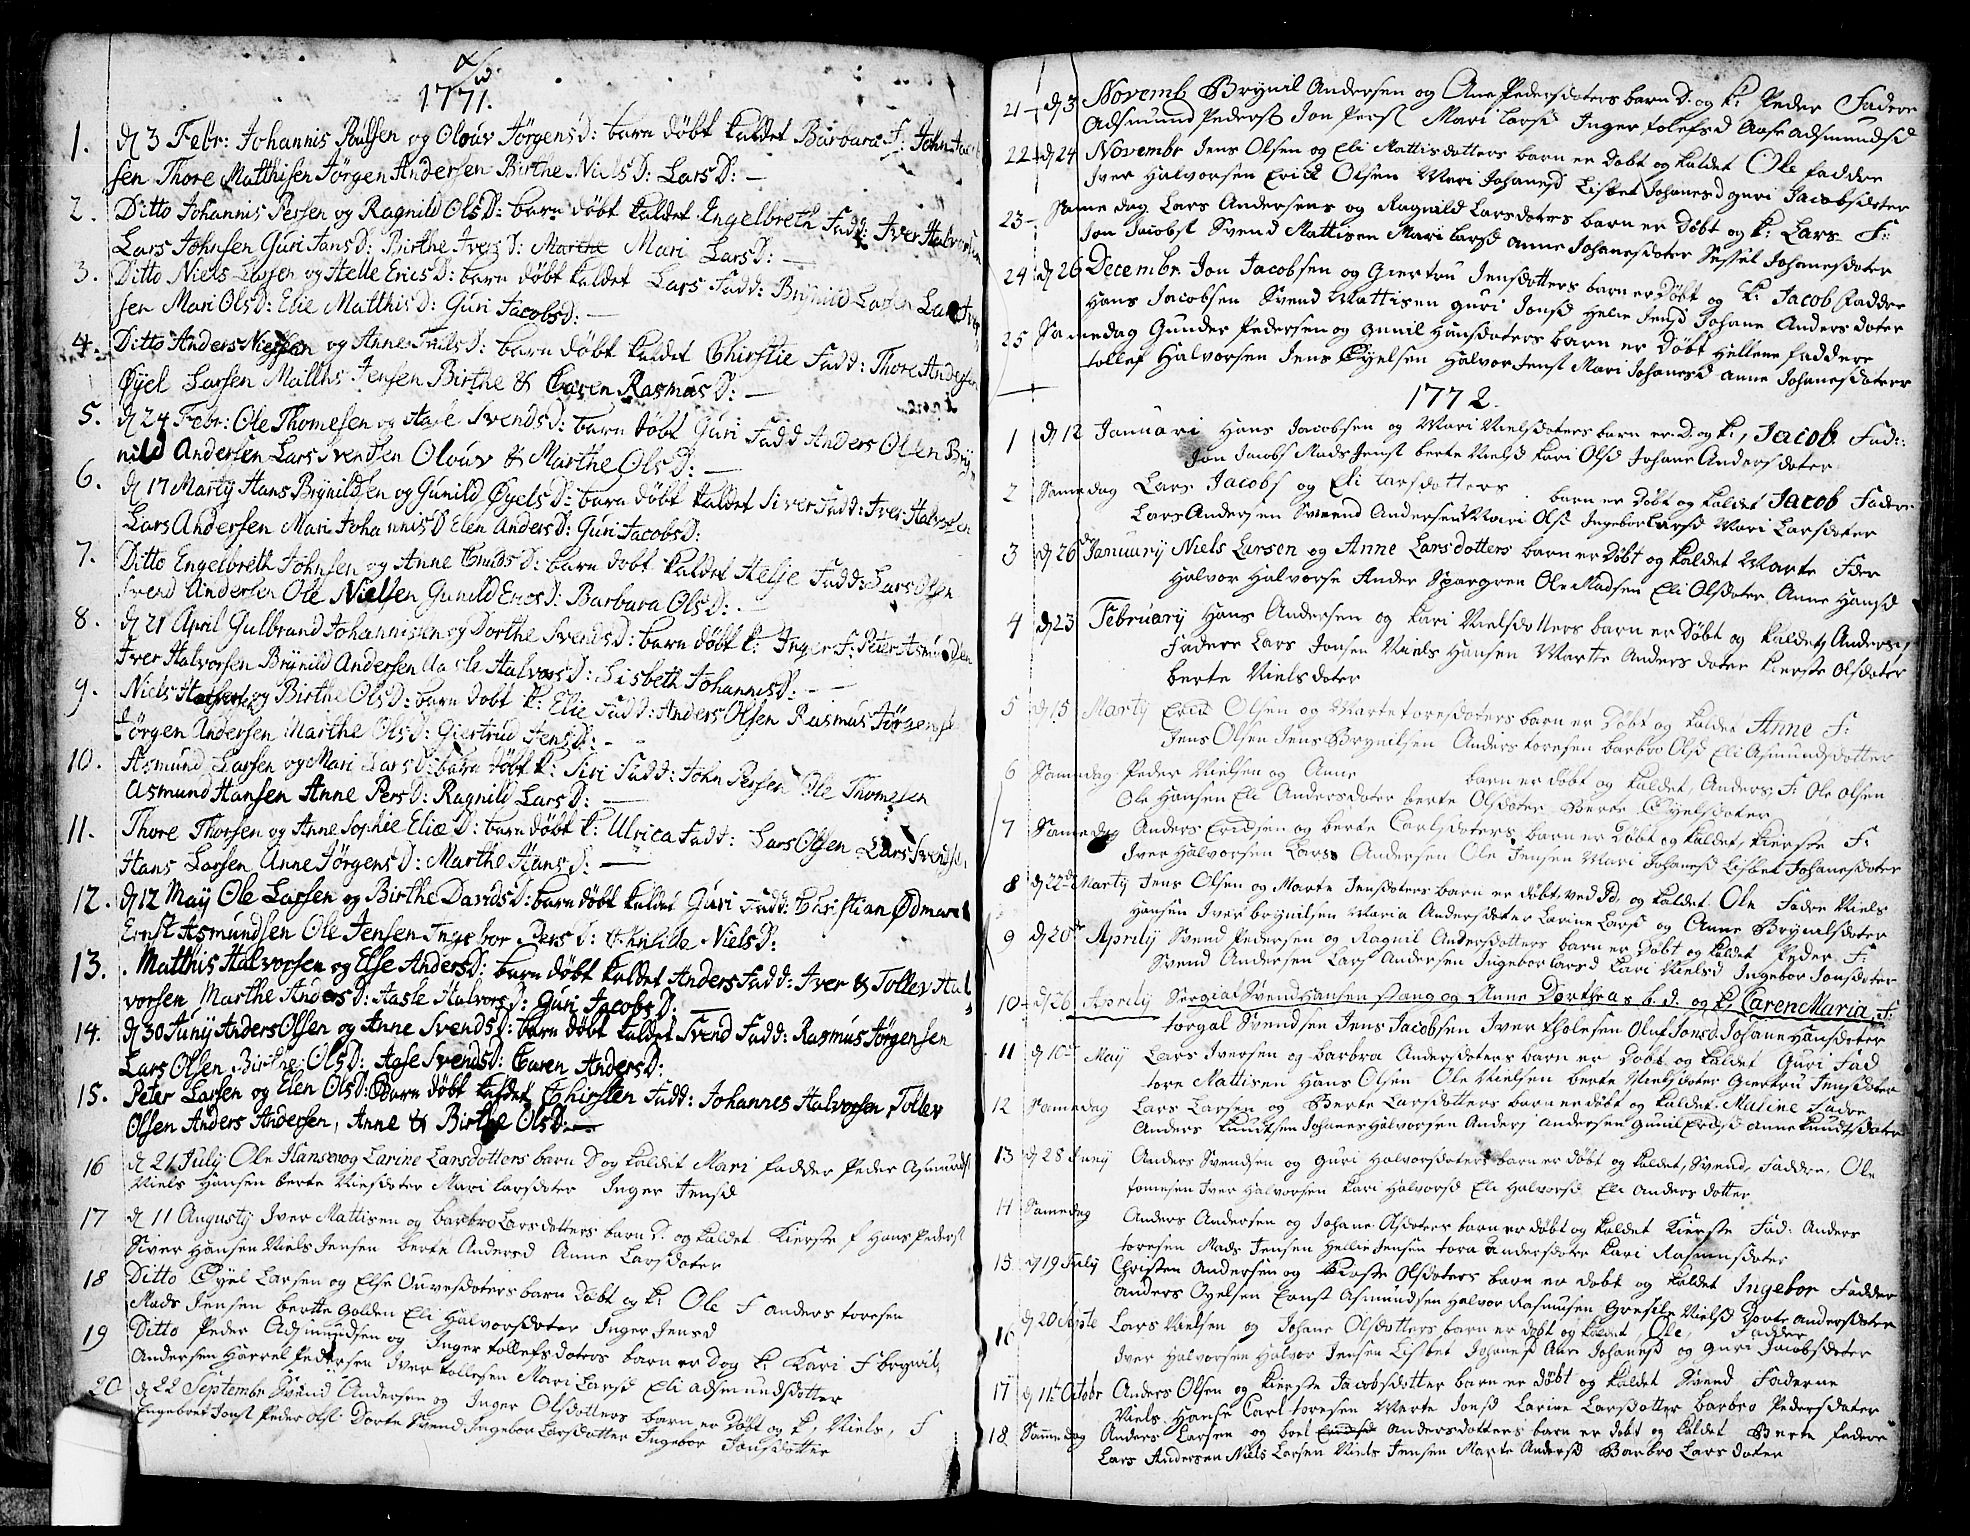 1771.
1. d 3 Febr: Johannis Poulsen og Olouv Jörgens D: barn döbt kaldet Barbara F: John Jacob
sen Thore Matthisen Jörgen Andersen Birthe Niels D: Lars D:
2. Ditto Johannis Persen og Ragnild Ols D: barn döbt kaldet Ingelbreth Fadd: Iver Halvorsen
Lars Johnsen Guri Jans D: Birthe Ivers D: Marthe Mari Lars D:
3. Ditto Niels Larsen og Helle Erics D: barn döbt kaldet Lars Fadd: Brynild Larsen Lars Iver
sen Mari Ols D: Elie Matthis D: Guri Jacobs D:
4. Ditto Anders Nielsen og Anne D: barn döbt kaldet Chirstie Fadd: Thore Andersen
Öyel Larsen Matths Jensen Birthe & Caren Rasmus D:
5. d 24 Febr: Ole Thomesen og Aase Svends D: barn döbt Guri Fadd Anders Olsen Bry
nild Andersen Lars Svendsen Olouv & Marthe Ols D:
6. d 17 Marty Hans Brynildsen og Gunild Öyels D: barn döbt kaldet Siver Fadd: Iver Halvorsen
Lars Andersen Mari Johannis D Elen Anders D: Guri Jacobs D:
7. Ditto Engelbreth Johnsen og Anne Cnuds D: barn dobt kaldet Helje Fadd: Lars Olsen
Svend Andersen Ole Nielsen Gunild Erics D: Barbara Ols D:
8. d 21 April Gulbrand Johannisen og Dorthe Svends D: barn döbt k: Inger F: Peter Asmunden
Iver Halvorsen Brynild Andersen Aasle Halvors D: Lisbeth Johannis D:
9. Niels og Birthe Ols D: barn döbt k: Elie Fadd: Anders Olsen Rasmus Jörgens
Jörgen Andersen Marthe Ols D: Giertrud Jens D:
10. Asmund Larsen og Mari Lars D: barn döbt k: Siri Fadd: John Persen Ole Thomesen
Asmund Hansen Anne Pers D: Ragnild Lars D:
11. Thore Thorsen og Anne Sophie Eliæ D: barn döbt k: Ulrica Fadd: Lars Olsen Lars Svendsen
Hans Larsen Anne Jörgens D: Marthe Hans D:
12. d 12 May Ole Larsen og Birthe Davids D: barn döbt kaldet Guri Fadd: Christian Ödmark
Ernst Asmundsen Ole Jensen Ingebor Pers D: Niels D:
13. Matthis Halvorsen og Else Anders D: barn döbt kaldet Anders Fadd: Iver & Tollev Hal
vorsen Marthe Anders D: Aasle Halvors D: Guri Jacobs D:
14. d 30 Juny Anders Olsen og Anne Svends D: barn döbt kaldet Svend Fadd: Rasmus Jörgensen
Lars Olsen Birthe Ols D: Aase Svends D: Caren Anders D:
15. Peter Larsen og Elen Ols D: barn döbt kaldet Chirsten Fadd: Johannes Halvorsen Tollev
Olsen Anders Andersen, Anne & Birthe Ols D:
16 d 21 July Ole Hansen og Larine Larsdotters barn D og kaldet Mari fadder Peder Asmunds
Niels Hansen berte Nielsdoter Mari larsdoter Inger Jensd
17 d 11 Augusty Iver Mattisen og barbro Larsdotters barn D. og kaldet Kierste f Hans Peders
Siver Hansen Niels Jensen berte Andersd Anne Larsdoter
18 Ditto Öyel Larsen og Else Ouvesdoters barn Döbt og k: Ole F anders toresen
Mads Jensen bertte golden Eli Halvorsdoter Inger Jensd
19 Ditto Peder Adsmundsen og Inger tollefsdoters barn er D og k: Kari F brynil
Andersen Harrel Pedersen Iver tollesen Mari Larsd Eli adsmundsdotter
20 d 22 Septembr Svend Andersen og Inger Olsdotters barn er Döbt og k, Niels, F
Engebret Jonst Peder olst Dorte Svend Ingebor Larsdotter Ingebor Jonsdotter
21 d 3 Novemb Brynil Andersen og Ane Pedersdoters barn D. og k: Peder Fadere
Adsmund Peders Jon Pers Mari larsd Inger tolefsd Aase adsmundsd
22 d 24 Novembr Jens Olsen og Eli Mattisdotters barn er döbt og kaldet Ole faddre
Iver Halvorsen Erick Olsen Mari Johanesd Lisbet Johanesd guri Jacobsdoter
23 Samedag Lars Andersens og Ragnild Larsdoters barn er Döbt og k: Lars F:
Jon Jacobst Svend Mattisen Mari larsd Anne Johanesdoter Sessel Johanesdoter
24 d 26 Decembr Jon Jacobsen og Giertru Jensdotters barn er Döbt og k: Jacob faddre
Hans Jacobsen Svend Mattisen guri Jonsd Helie Jensd Johane Anders doter
25 Samedag Gunder Pedersen og gunil Hansdoters barn er Döbt Hellene faddere
tollef Halvorsen Jens Öyelsen Halvor Jenst Mari Johanesd anne Johanesdoterr
1772.
1 d 12 Januari Hans Jacobsen og Mari Nielsdoters barn er D. og k, Jacob Fad:
Jon Jacobs Mads Jenst berte Nielsd kari Olsd Johane Andersdoter
2 Samedag Lars Jacobs og Eli larsdotters barn er döbt og kaldet Jacob Faddre
Lars Andersen Svend Andersen Mari Olsd Ingebor Larsd Mari Larsdoter
3 d 26 January Niels Larsen og Anne Larsdotters barn er döbt og kaldet Marte Fder
Halvor Halvorse Ander Spargren Ole Madsen Eli Olsdoter Anne Hansd
4 d 23 February Hans Andersen og kari Nielsdotters barn er Döbt og kaldet Anders,
Fadere Lars Jonsen Niels Hansen Marte Anders doter kierste Olsdoter
berte Nielsdoter
5 d 15 Marty Erick Olsen og Marte toresdoters barn er Döbt og kaldet Anne F:
Jens Olsen Jens Brynilsen Anders toresen barbro Olsd Eli Asmundsdotter
6 Samedag Peder Nielsen og Anne barn er döbt og kaldet, Anders, F: Ole olsen
Ole Hansen Eli Andersdoter berte Olsdoter Berte Öyelsdoter
7 Samedag Anders Ericksen og berte Carlsdoters barn er Döbt og kaldet, kierste F:
Iver Halvorsen Lars Andersen Ole Jensen Mari Johanesd Lisbet Johanesdoter
8 d 22 Marty Jens Olsen og Marte Jensdoters barn er döbt ved D, og kaldet Ole Fadre Niels
Hansen Iver brynilsen Maria Andersdoter Larine Larsd og Anne Brynilsdoter
9 d 20 Aprily Svend Pedersen og Ragnil Andersdotters barn er Döbt og kaldet Peder F:
Svend Andersen Lars Andersen Ingebor larsd kari Nielsd Ingebor Jonsdoter
10 d 26 Aprily Sergiat Svend Hansen stang og Anne Dortheas b. d. og k, Caren Maria, F:
torgal Svendsen Jens Jacobsen Iver tholesen Oluf Jonsd Johane Hansdoter
11 d 10 May Lars Iversen og barbra Andersdoters barn er Döbt og kaldet Guri Fad
tore Mattisen Hans Olsen Ole Nielsen berte Nielsdoter Giertru Jensdoter
12 Samedag Lars Larsen og Berte Larsdotters barn er döbt og kaldet Maline Fadre
Anders knudtsen Johanes Halvorsen Anders andersen gunil Ericsd anne knudtsdoter
13 d 28 Juny Anders Svendsen og guri Halvorsdoters barn er döbt og kaldet, Svend, Faddre, Ole
tomesen Iver Halvorsen kari Halvorsd Eli Halvorsd Eli Andersdotter
14 Samedag Anders Andersen og Johane Olsdoters barn er döbt og kaldet Kierste Fad: Anders
toresen Mads Jensen Hellie Jensen tora Andersdoter kari Rasmusdoter
15. d 19 July Christen Andersen og Olsdoters barn er döbt og kaldet Ingebor Fadder
anders Öyelsen Ernst Asmundsen Halvor Rasmusen Gresile Nielsd Dorte andersdoter
16 d 20 Lars Nielsen og Johane Olsdotters barn er döbt og kaldet Ole, Fadder
Iver Halvorsen Halvor Jensen Lisbet Johanesd Johanesd og guri Jacobsdoter
17 d 11 Octobr Anders Olsen og kierste Jacobsdotter barn er döbt og kaldet Svend Faderne
Niels Hanse Carl toresen Marte Jonsd Larine Larsdotter barbro Pedersdoter
18 Samedag Anders Larsen og boel andersdotters barn er döbt og kaldet Berte federe
Lars Andersen Niels Larsen Niels Jensen Marte Andersd Barbro Lars doter